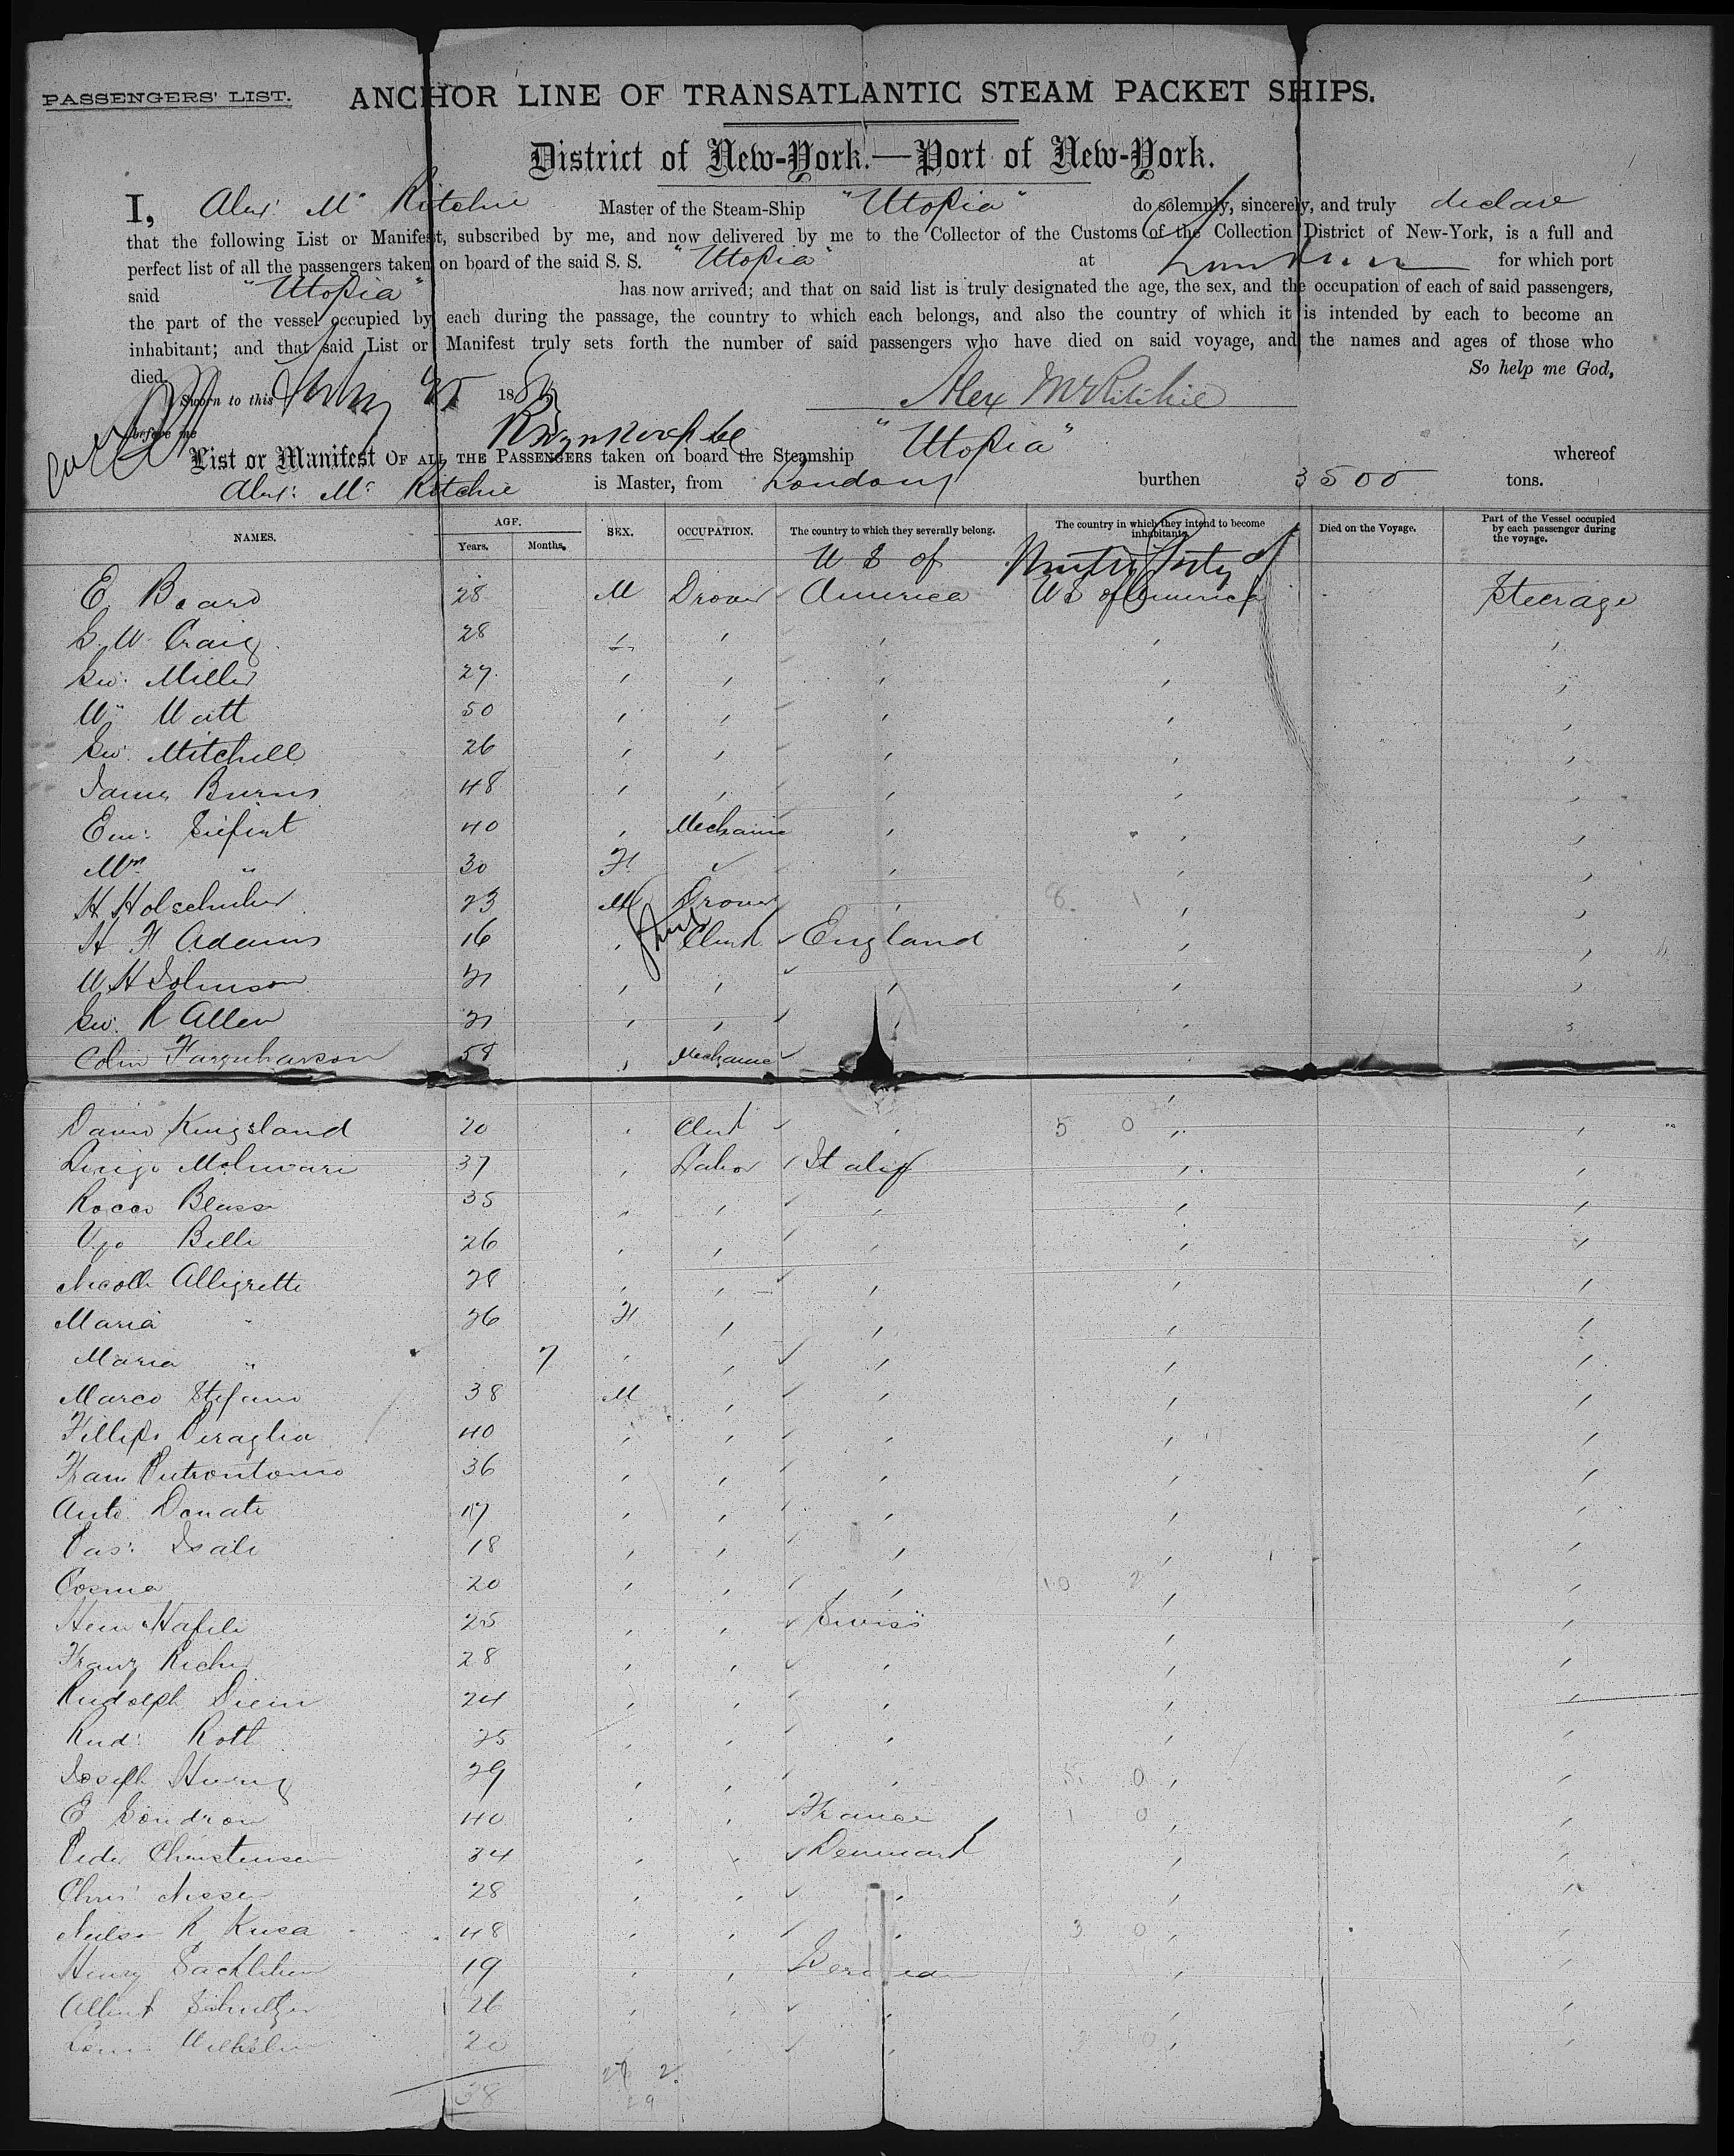 PASSENGERS' LIST. ANCHOR LINE OF TRANSATLANTIC STEAM PACKET SHIPS.
District of New-York.—Port of New-York.
I, Alex' Mc Ritchie Master of the Steam-Ship "Utopia" do solemnly, sincerely, and truly declare
that the following List or Manifest, subscribed by me, and now delivered by me to the Collector of the Customs of the Collection District of New-York, is a full and
perfect list of all the passengers taken on board of the said S. S. "Utopia" at London for which port
said "Utopia" has now arrived; and that on said list is truly designated the age, the sex, and the occupation of each of said passengers,
the part of the vessel occupied by each during the passage, the country to which each belongs, and also the country of which it is intended by each to become an
inhabitant; and that said List or Manifest truly sets forth the number of said passengers who have died on said voyage, and the names and ages of those who
died. So help me God,
Sworn to this 188 Alex McRitchie
before me
List or Manifest OF ALL THE PASSENGERS taken on board the Steamship "Utopia" whereof
Alex: Mc Ritchie is Master, from London burthen 3500 tons.
NAMES. AGE. Years. Months. SEX. OCCUPATION. The country to which they severally belong. The country in which they intend to become inhabitants. Died on the Voyage. Part of the Vessel occupied by each passenger during the voyage.
E Beard 28 M Drover U S of America U S of America Steerage
G. W. Craig 28 " " " " "
Geo: Miller 27 " " " " "
Wm Watt 50 " " " " "
Geo: Mitchell 26 " " " " "
James Burns 48 " " " " "
Em: Siefert 40 " Mechanic " " "
Mrs " 30 F " " "
H Holschuher 23 M Drover " " "
H F Adams 16 " Clerk England " "
W H Johnson 21 " " " " "
Geo. R Allen 21 " " " " "
Colin Farquharson 58 " Mechanic " "
David Kingsland 20 " Clerk " " "
Luigi Molinari 37 " Labor Italy " "
Rocco 35 " " " " "
Ugo Belli 26 " " " " "
Nicolle Alligrette 28 " " " " "
Maria " 26 F " " " "
Maria " 7 " " " " "
Marco Stefano 38 M " " " "
Fillipo Peraglia 40 " " " " "
Fran Putrontonio 36 " " " " "
Anto: Donato 17 " " " " "
Pas: 18 " " " " "
Cosma 20 " " " " "
Hein Hafeli 25 " " Swiss " "
Franz 28 " " " " "
Rudolph 24 " " " " "
Rud: Roth 25 " " " " "
Joseph 29 " " " " "
E Gondron 40 " " France " "
Peder Christensen 34 " " Denmark " "
Chris: Nissen 28 " " " " "
R 48 " " " " "
Henry 19 " " German " "
Albert Schultze 26 " " " " "
Wilhelm 20 " " " " "
38 27 2
29